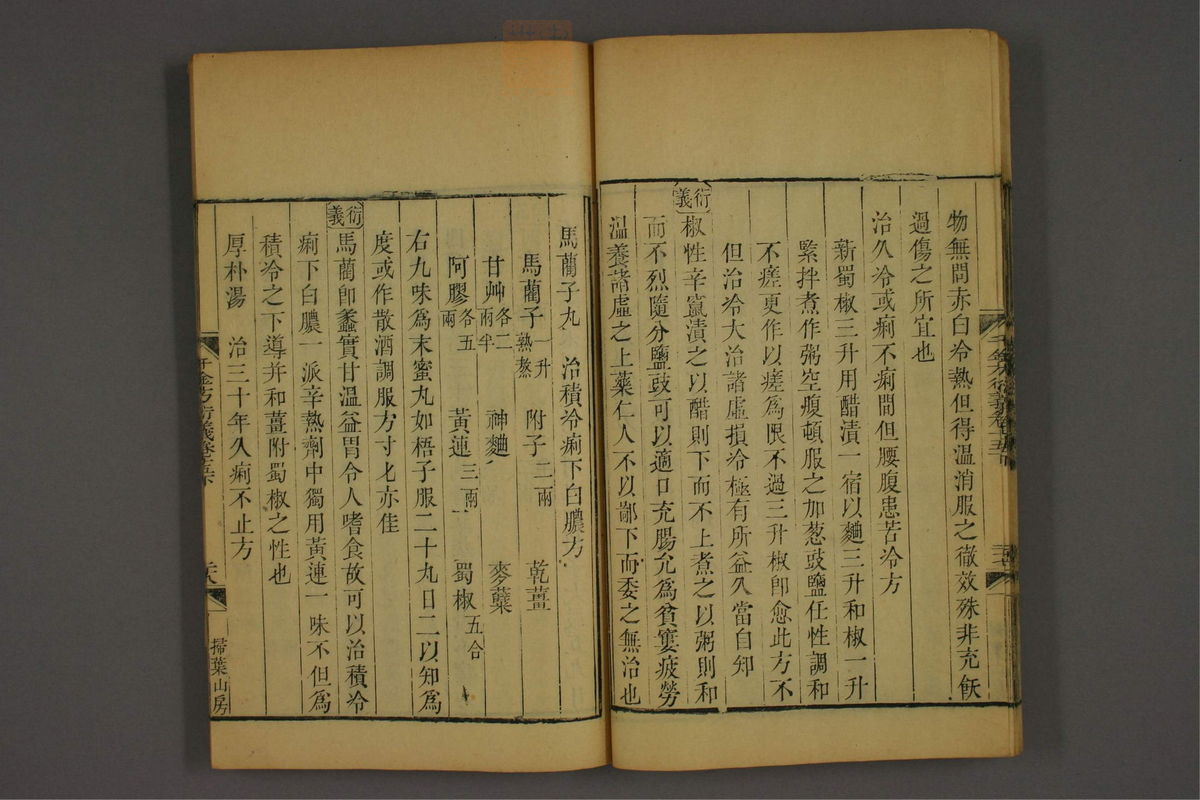 物無問赤白冷熱但得温消服之徹效殊非充飫
過傷之所宜也
治久冷或痢不痢間但腰腹患苦冷方
新蜀椒三升用醋漬一宿以麯三升和椒一升
緊拌煮作粥空腹頓服之加葱豉鹽任性調和
不瘥更作以瘥爲限不過三升椒卽愈此方不
但治冷大治諸虛損冷極有所益久當自知
衍義
椒性辛竄漬之以醋則下而不上煮之以粥則和
而不烈隨分鹽豉可以適口充腸允爲貧窶疲勞
温養諸虛之上藥仁人不以鄙下而委之無治也
馬藺子丸 治積冷痢下白膿方
馬藺子一升熟熬 附子二兩 乾薑
甘艸各二兩半 神麯 麥蘖
阿膠各五兩 黃連三兩 蜀椒五合
右九味爲末蜜丸如梧子服二十丸日二以知爲
度或作散酒調服方寸匕亦佳
衍義
馬藺卽蠡實甘温益胃令人嗜食故可以治積冷
痢下白膿一派辛熱劑中獨用黃連一味不但爲
積冷之下導并和薑附蜀椒之性也
厚朴湯 治三十年久痢不止方
千金方衍義卷十五下
掃葉山房